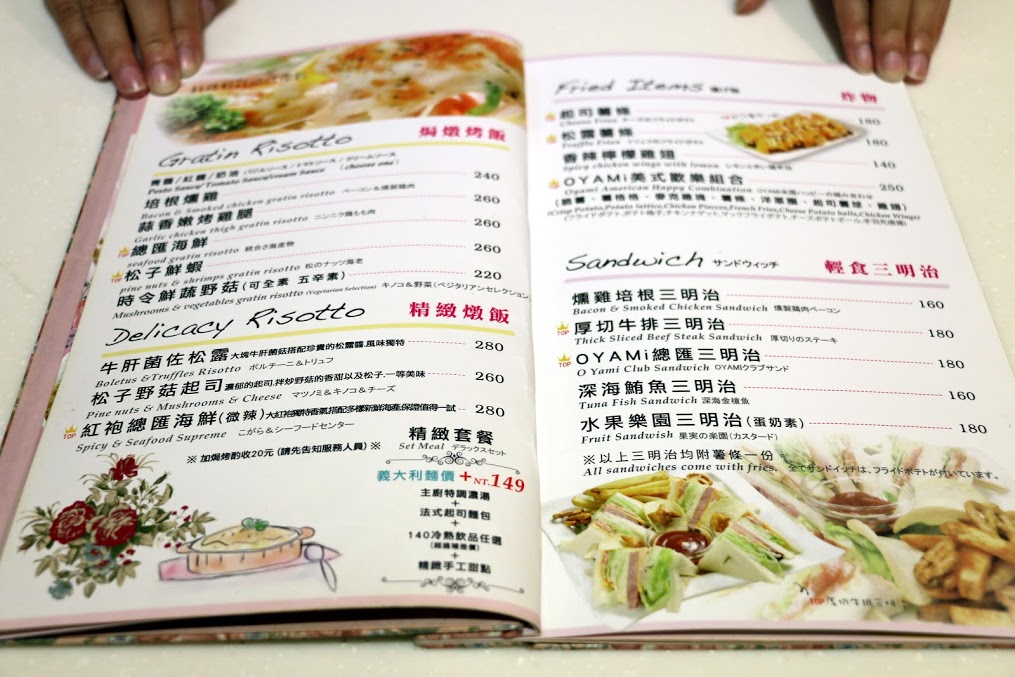 Gratin Risotto 焗燉烤飯
青醬/紅醬/奶油 バジルソース/トマトソース/クリームソース
Pesto Sauce/Tomato Sauce/cream Sauce (choose one) 240
培根燻雞 ベーコン&燻製鶏肉 260
Bacon & Smoked chicken gratin risotto
蒜香嫩烤雞腿 ニンニク鶏もも肉 260
Garlic chicken thigh gratin risotto
TOP 總匯海鮮 260
seafood gratin risotto 統合さ海産物
TOP 松子鮮蝦 220
pine nuts & shrimps gratin risotto 松のナッツ海老
時令鮮蔬野菇(可全素 五辛素)
Mushrooms & vegetables gratin risotto (Vegetarian Selection) キノコ&野菜(ベジタリアンセレクション)
Delicacy Risotto 精緻燉飯
牛肝菌佐松露 大塊牛肝菌菇搭配珍貴的松露醬,風味獨特 280
Boletus &Truffles Risotto ポルチーニ&トリュフ
松子野菇起司 濃郁的起司,拌炒野菇的香甜以及松子,一等美味 260
Pine nuts & Mushrooms & Cheese マツノミ&キノコ&チーズ
TOP 紅袍總匯海鮮(微辣) 大紅袍獨特香氣搭配多樣新鮮海產保證值得一試 280
Spicy & Seafood Supreme こがら&シーフードセンター
※ 加焗烤酌收20元 (請先告知服務人員) ※
精緻套餐
Set Meal デラックスセット
義大利麵價 +NT.149
主廚特調濃湯
+
法式起司麵包
+
140冷熱飲品任選
(超過補差價)
+
精緻手工甜點
Fried Items 揚げ物 炸物
起司薯條 180
Cheese Fries チーズのフライドポテト
松露薯條 180
Truffle Fries トリュフのフライドポテト
香辣檸檬雞翅 140
Spicy chicken wings with lemon
OYAMi美式歡樂組合 250
Oyami American Happy Combination OYAMi米国ハッピーの組み合わせ
(脆薯、薯格格、麥克雞塊、薯條、洋蔥圈、起司薯球、雞翅)
(Crisp Potato,Potato lattice,Chicken Pieces,French Fries,Cheese Potato balls,Chicken Wings)
(フライドポテト,ポテト格子,チキンナゲット,マックフライポテト,チーズポテトボール,手羽先唐揚)
Sandwich サンドウィッチ 輕食三明治
燻雞培根三明治 160
Bacon & Smoked Chicken Sandwich 燻製鶏肉ベーコン
TOP 厚切牛排三明治 180
Thick Sliced Beef Steak Sandwich 厚切りのステーキ
TOP OYAMi總匯三明治 180
O Yami Club Sandwich OYAMIクラブサンド
深海鮪魚三明治 160
Tuna Fish Sandwich 深海金槍魚
水果樂園三明治(蛋奶素) 180
Fruit Sandwish 果実の楽園(カスタード)
※以上三明治均附薯條一份
All sandwiches come with fries. 全てサンドイッチは、フライドポテトが付いています。
TOP厚切牛排三明治